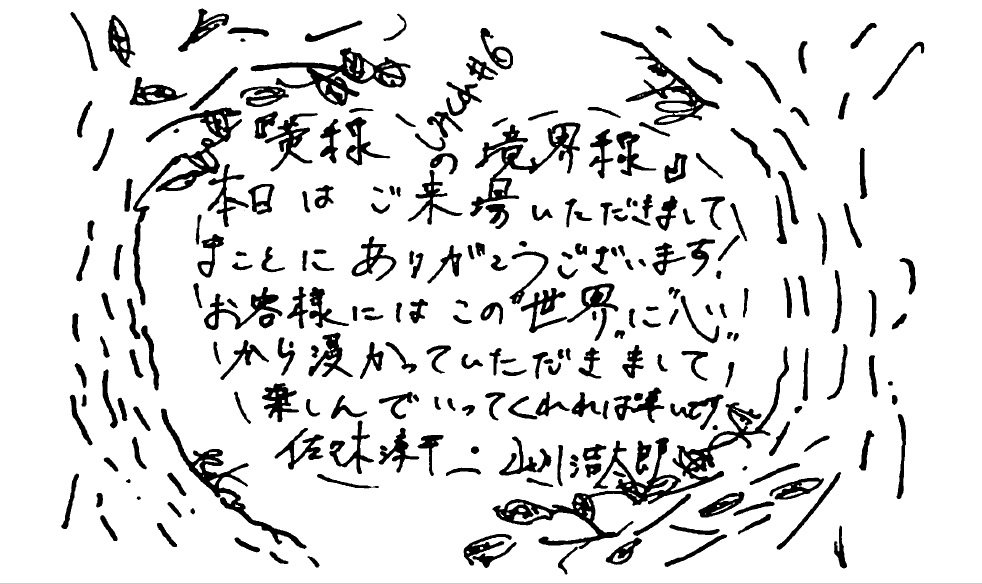 #6
『黄緑の境界線』
本日はご来場いただきまして
まことにありがとうございます!
お客様にはこの"世界"に"心"
から漫かっていただきまして
楽しんでいってくれれば幸いです。
佐々木淳平・山川浩太郎